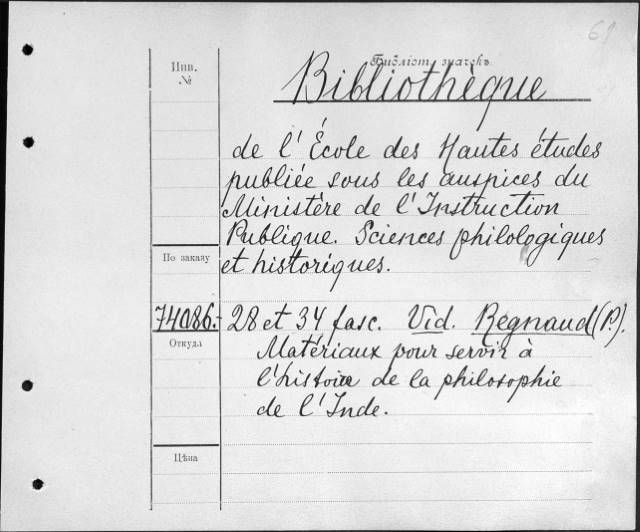 69
Инв.
№
Библіот. значекъ
Bibliothèque
de l'École des Hautes études
publiée sous les auspices du
Ministère de l'Instruction
Publique. Sciences philologiques
et historiques.
По заказу
74086.- 28 et 34 fasc. Vid. Regnaud (P.).
Откуда
Matériaux pour servir à
l'histoire de la philosophie
de l'Inde.
Цѣна